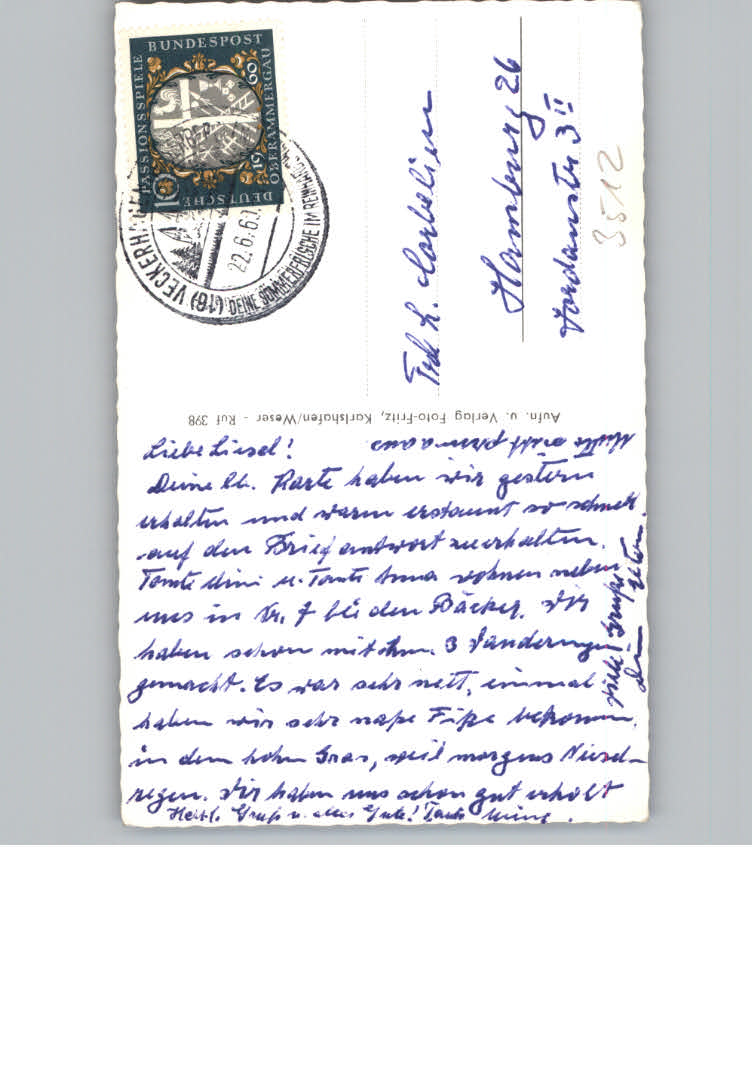 DEUTSCHE BUNDESPOST
PASSIONSSPIELE
OBERAMMERGAU
1960
10
(16) VECKERHAGEN
22.6.60
DEINE SOMMERFRISCHE IM REINHARDS
Hamburg 26
3512
Aufn. u. Verlag Foto-Fritz, Karlshafen/Weser - Ruf 398
Liebe Liesel!
Deine lb. Karte haben wir gestern
erhalten und waren erstaunt so schnell
auf den Brief antwort zu erhalten.
Tante u. Tante Anna wohnen neben
uns in Nr. 7 bei den Bäcker. Wir
haben schon mit Ihn. 3 Wanderungen
gemacht. Es war sehr nett, einmal
haben wir sehr naße Füße bekommen,
in dem hohen Gras, weil morgens Niesel-
regen. Wir haben uns schon gut erholt
Viele Grüße
Herzl. Gruß u. alles Gute! Tante